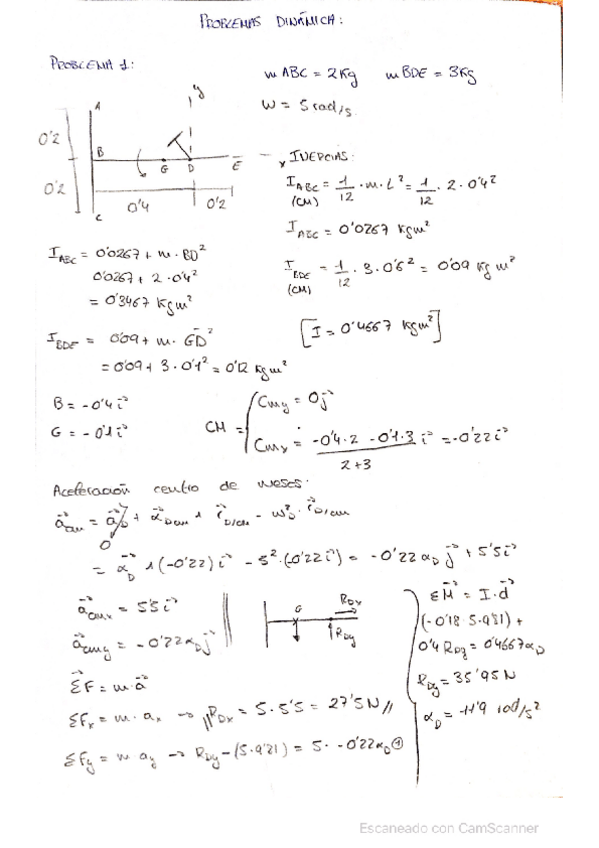 PROBLEMAS DINÁMICA:
PROBLEMA 1:
m ABC = 2Kg   m BDE = 3Kg
W = 5 rad/s.
A
y
0'2
B
G
D
E
x
0'2
0'4
0'2
C
INERCIAS:
I_ABC (CM) = 1/12 · m · L² = 1/12 · 2 · 0'4²
I_ABC = 0'0267 Kgm²
I_BDE (CM) = 1/12 · 3 · 0'6² = 0'09 Kg m²
[I = 0'4667 Kgm²]
I_ABC = 0'0267 + m · BD²
0'0267 + 2 · 0'4²
= 0'3467 Kgm²
I_BDE = 0'09 + m · GD²
= 0'09 + 3 · 0'1² = 0'12 Kgm²
B = -0'4 i
G = -0'1 i
CM = { CMy = 0 j
CMx = (-0'4·2 - 0'1·3)/(2+3) i = -0'22 i
Aceleración centro de masas:
a_CM = a_D + α_DCM ∧ r_D/CM - W²_D · r_D/CM
0
= α_D ∧ (-0'22) i - 5² · (-0'22 i) = -0'22 α_D j + 5'5 i
a_CMx = 5'5 i
a_CMy = -0'22 α_D j
G
R_Dx
R_Dy
ΣM = I · α
(-0'18 · 5 · 9'81) +
0'4 R_Dy = 0'4667 α_D
R_Dy = 35'95 N
α_D = -11'9 rad/s²
ΣF = m · a
ΣFx = m · ax → R_Dx = 5 · 5'5 = 27'5 N //
ΣFy = m ay → R_Dy - (5 · 9'81) = 5 · -0'22 α_D ①
Escaneado con CamScanner